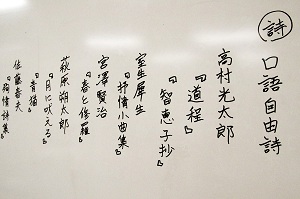 詩
口語自由詩
高村光太郎
『道程』
『智恵子抄』
室生犀生
『抒情小曲集』
宮澤賢治
『春と修羅』
萩原朔太郎
『月に吠える』
『青猫』
佐藤春夫
『殉情詩集』